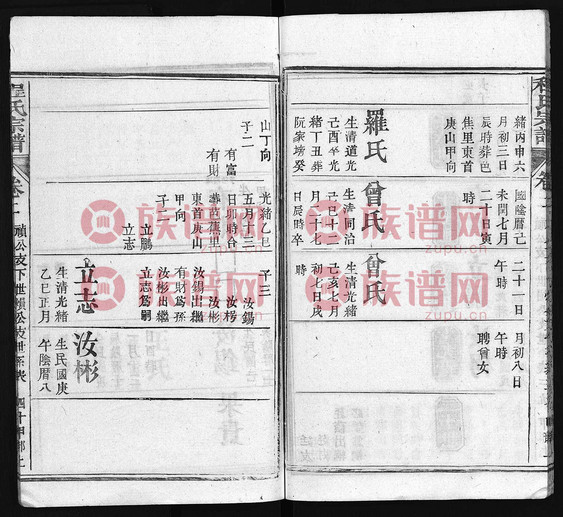 程氏宗譜
緒丙申六
月初三日
辰時葬邑
焦里東首
庚山甲向
羅氏
生清道光
己酉卒光
緒丁丑葬
阮家塝癸
山丁向
子二
有富
有財
國陰曆己
未閏七月
二十日寅
時
曾氏
生清同治
己巳十二
月十七
日辰時卒
光緒乙巳
五月三
日卯時合
葬邑焦里
東首庚山
甲向
子二
立鵬
立志
二十一日
午時
曾氏
生清光緒
己亥七月
初七日戌
時
子三
汝錫
汝楞
汝彬
汝錫出繼
有財爲孫
汝彬出繼
立志爲嗣
立志
生清光緒
乙巳正月
月初八日
午時
聘曾女
汝彬
生民國庚
午陰曆八
程氏宗譜
卷二
禎公支下世顯公支世系表
族谱网
zupu.cn